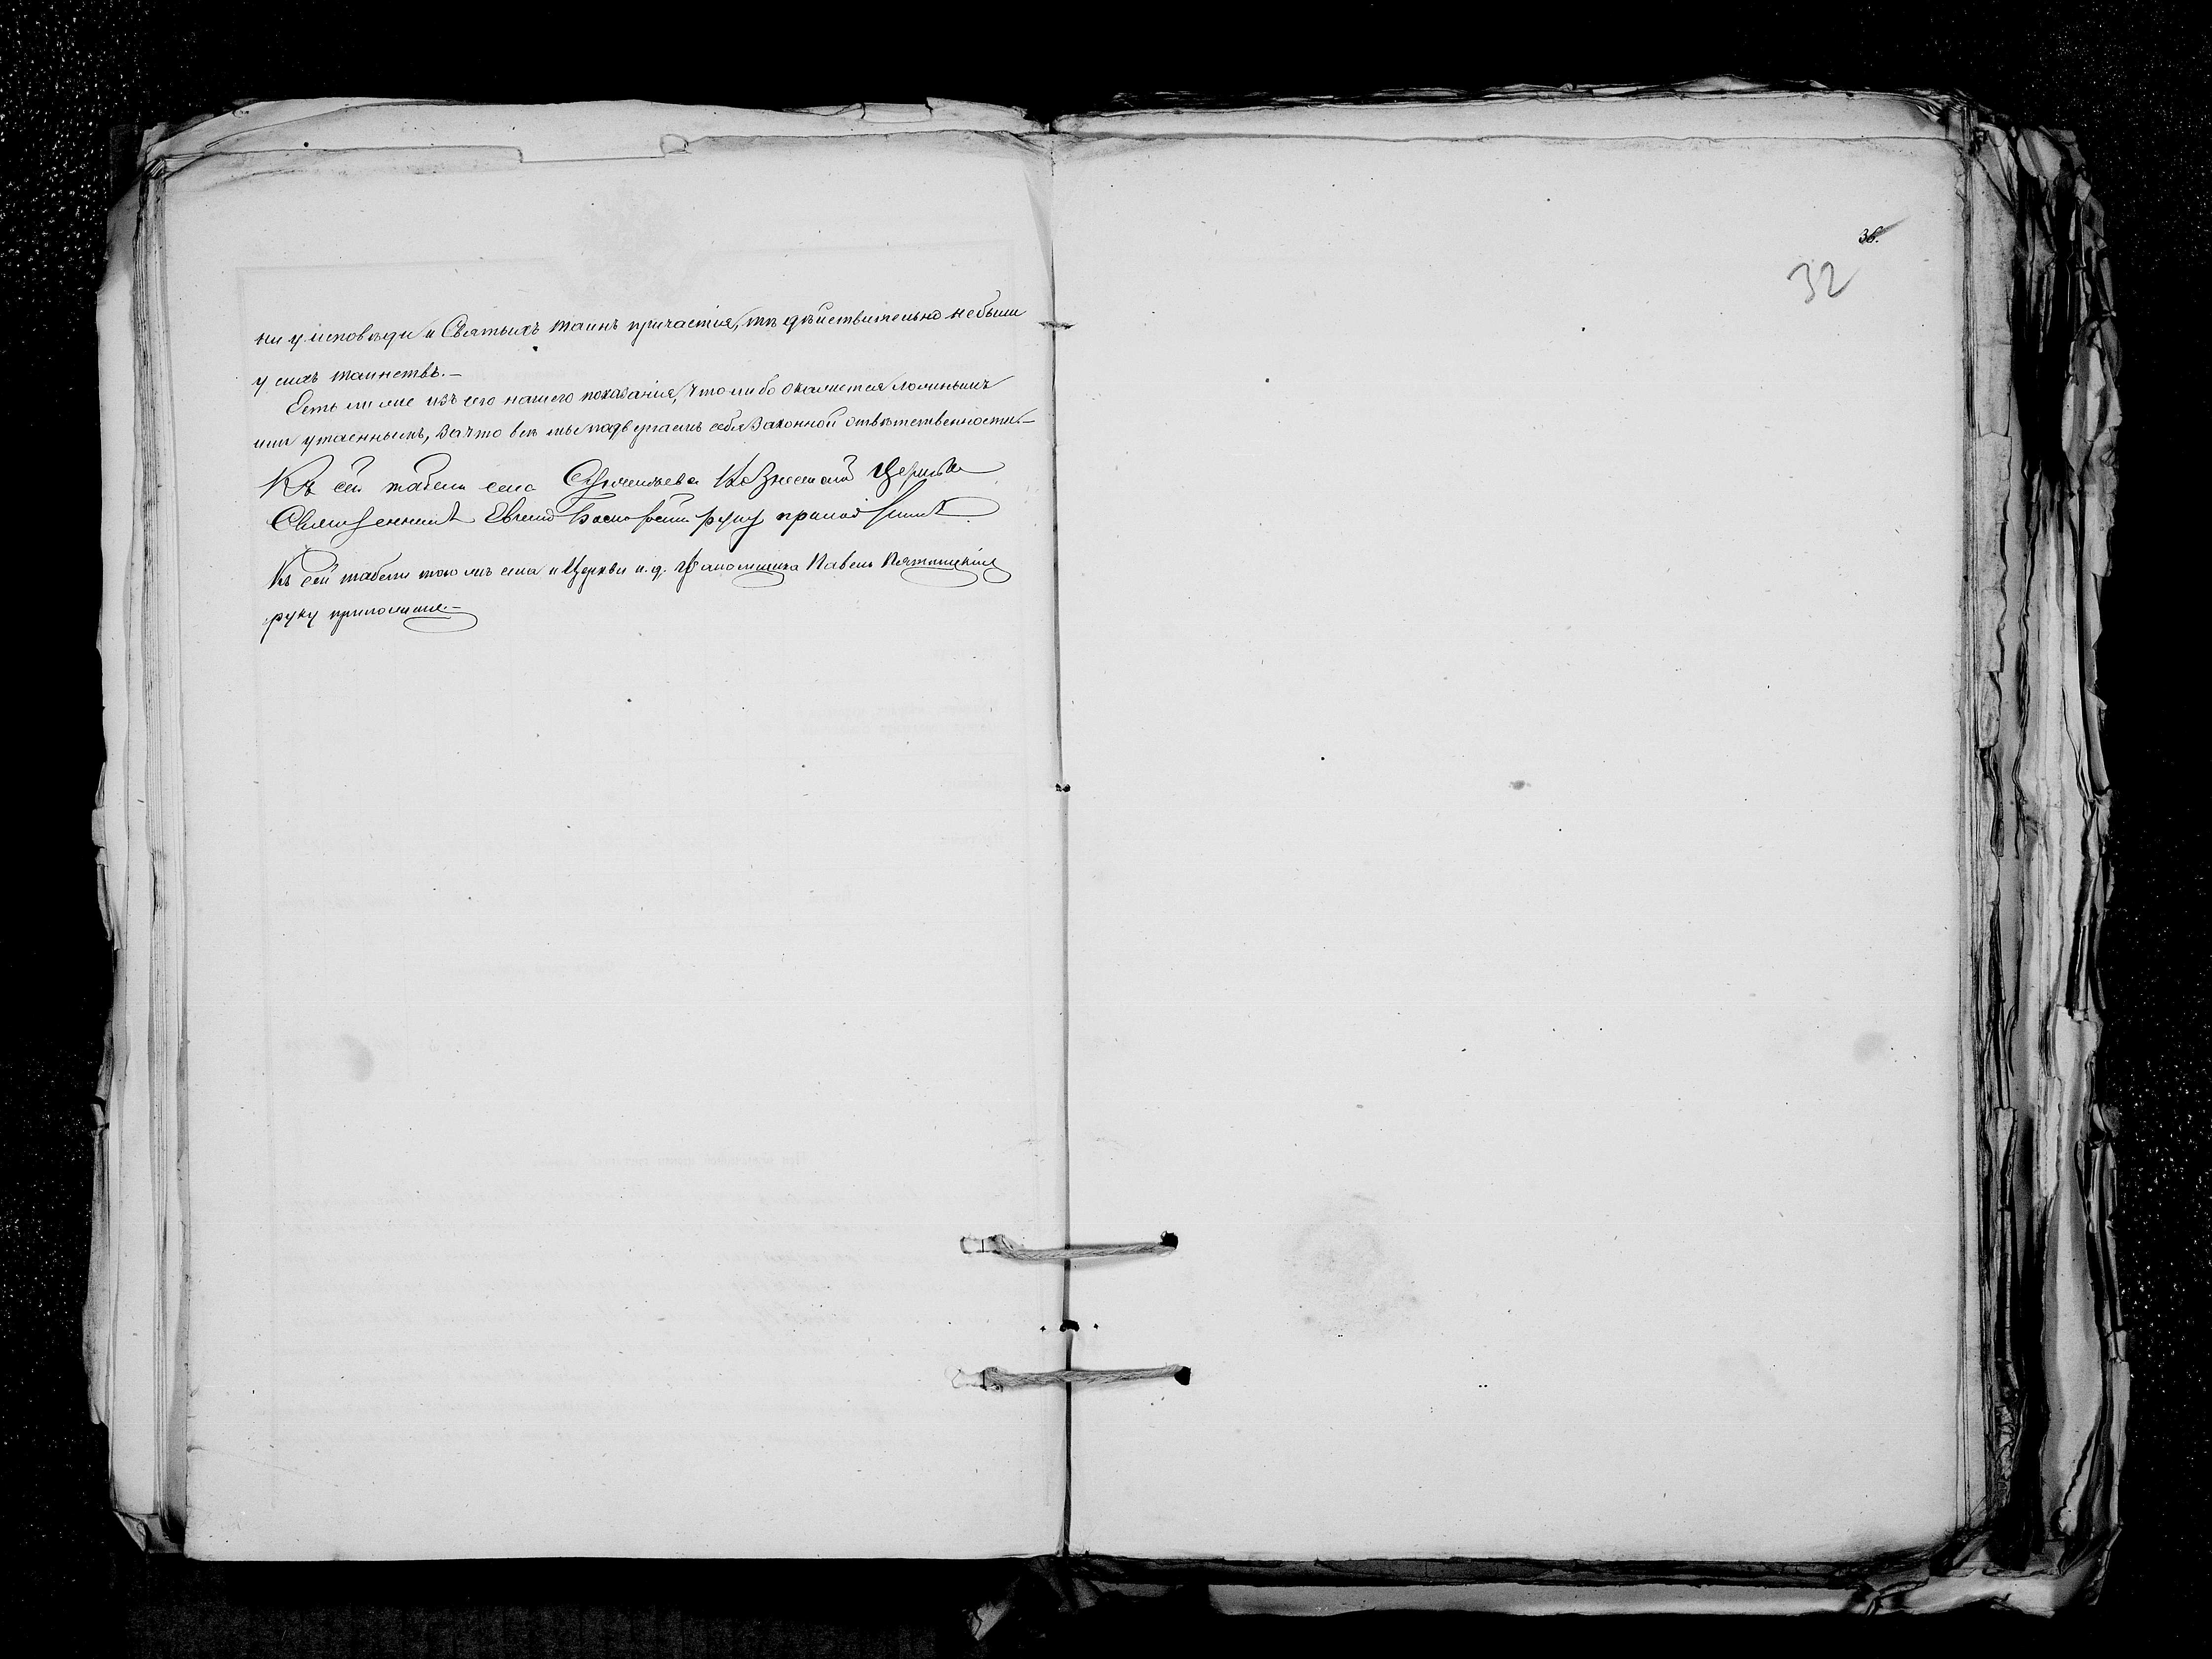 36.
32
ни у исповѣди и Святыхъ Таинъ причастія, тѣ дѣйствительно не были
у сихъ таинствъ.—
Есть ли же изъ сего нашего показанія, что либо окажется ложнымъ
или утаеннымъ, за что все мы подвергаемъ себя законной отвѣтственности.—
Къ сей табели села Вознесенской Церкви
Священникъ Евгений руку приложилъ
Къ сей табели того жъ села и Церкви и. д. Псаломщика Павелъ
руку приложилъ.—